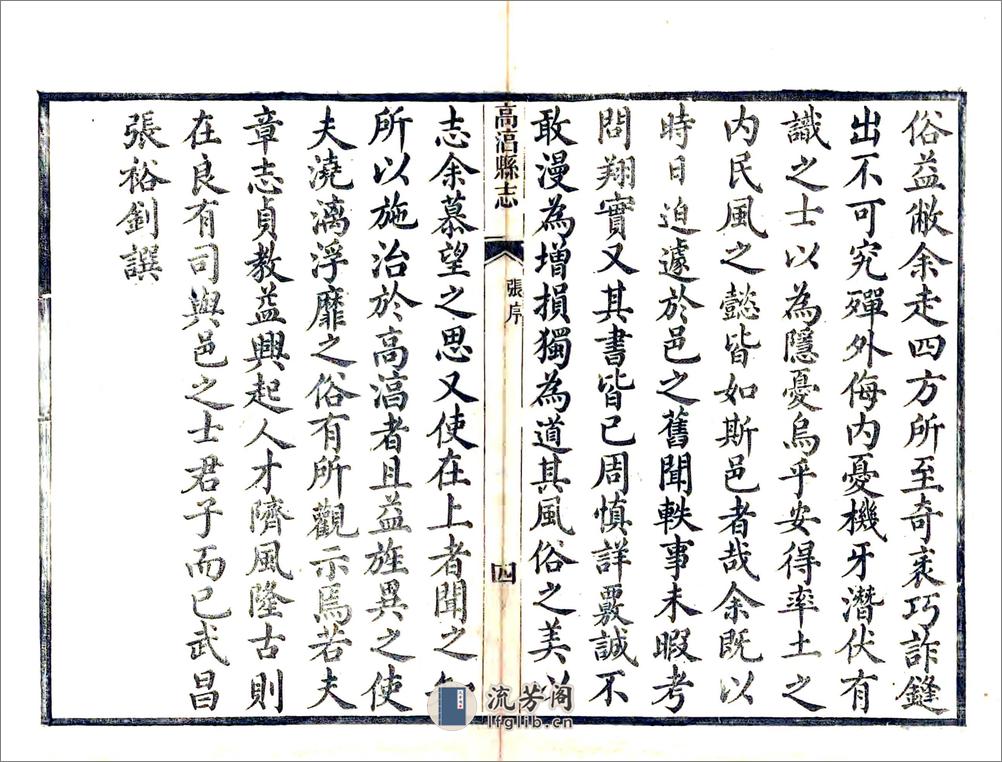 俗益敝余走四方所至奇衺巧詐鏠
出不可究殫外侮内憂機牙潛伏有
識之士以為隱憂烏乎安得率土之
内民風之懿皆如斯邑者哉余既以
時日迫遽於邑之舊聞軼事未暇考
問翔實又其書皆已周慎詳覈誠不
敢漫為增損獨為道其風俗之美
高淳縣志
張序
四
志余慕望之思又使在上者聞之知
所以施治於高淳者且益旌異之使
夫澆漓浮靡之俗有所觀示焉若夫
章志貞教益興起人才隮風隆古則
在良有司與邑之士君子而已武昌
張裕釗譔
流芳阁
lfglib.cn